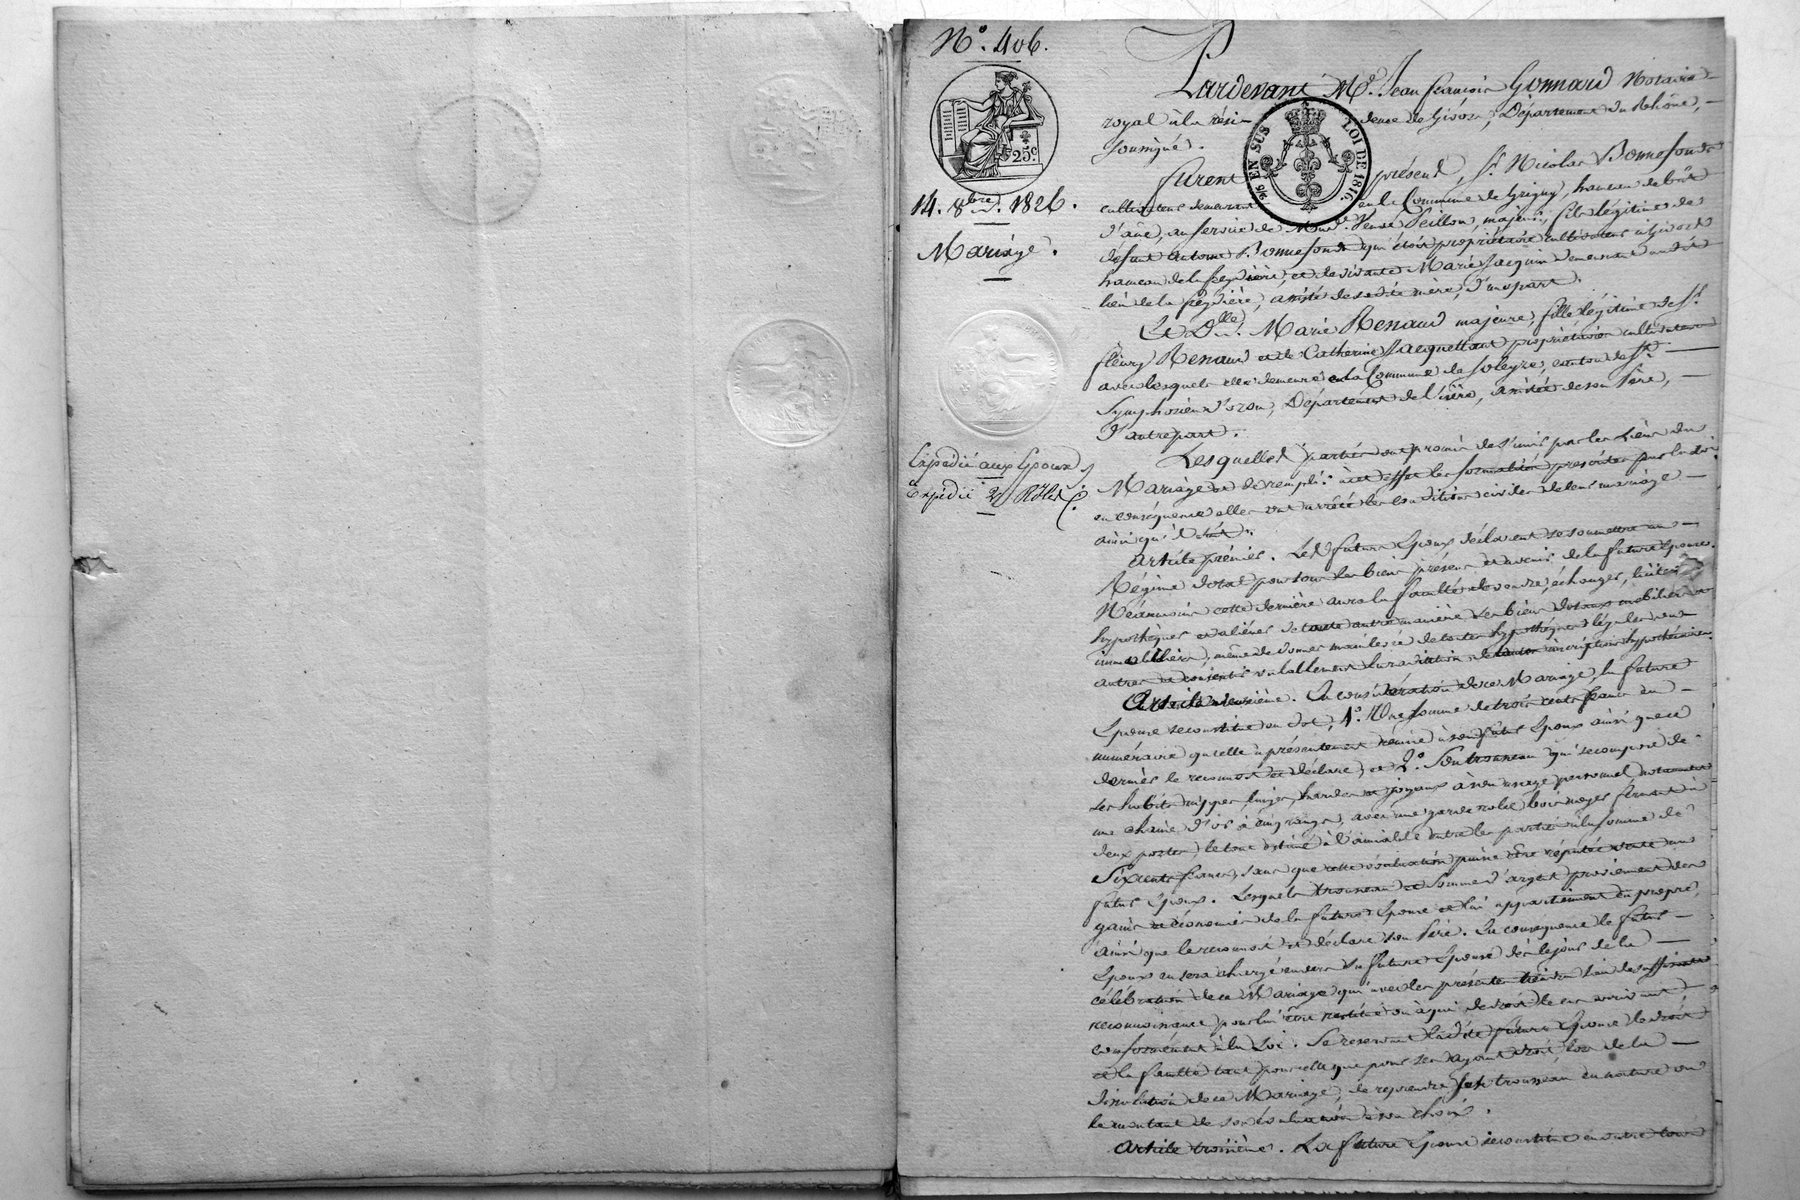 N.o 406.
25c.
14. 8bre. 1826.
Mariage.
Expédié aux Epoux
Expédié 2 Rôles
2/6 EN SUS LOI DE 1816.
Pardevant Me. Jean françois Gonnard Notaire
royal à la rési dence de Givors, Département du Rhône,
soussigné.
furent présent, Sr. Nicolas Bonnefond
cultivateur demeurant en la Commune de Grigny, hameau de bât
d'âne, au service de Made. Veuve Peillon, majeur, fils légitime de
défunt Antoine Bonnefond qui étoit propriétaire cultivateur à Givors
hameau de la freydière, et de vivante Marie Jacquin demeurant audit
lieu de la freydière, assisté de sadite mère, d'une part.
Et Dlle. Marie Renaud majeure, fille légitime de Sr.
fleury Renaud et de Catherine Jacquettant propriétaires cultivateurs
avec lesquels elle demeure en la Commune de Soleyze, canton de St.
Symphorien d'ozon, Département de l'isère, assistée de son Père,
d'autre part.
Lesquelles parties ont promis de s'unir par les liens du
Mariage et de remplir à cet effet les formalités prescrites par la loi,
en conséquence elles ont arrêté les conditions civiles de leur mariage
ainsi qu'il suit.
Article premier. Les futurs Epoux déclarent se soumettre au
Régime dotal pour tous les biens présens et avenir de la future Epouse.
Néanmoins cette dernière aura la faculté de vendre, échanger, liciter
hypothéquer et aliéner de toute autre manière ses biens dotaux mobiliers et
immobiliers, même de donner mainlevée de toutes hypothèques légales ou
autres et consentir valablement la radiation de toutes inscriptions hypothécaires.
Article deuxième. En considération de ce Mariage, la future
Epouse se constitue en dot, 1.o Une somme de trois cents francs en
numéraire qu'elle a présentement remise à son futur Epoux ainsi que ce
dernier le reconnoit et déclare, et 2.o Son trousseau qui se compose de
ses habits, nippes, linges, hardes et joyaux à son usage personnel, notamment
une chaîne d'or à cinq rangs, avec une garderobe bois noyer fermant à
deux portes, le tout estimé à l'amiable entre les parties à la somme de
Six cents francs, sans que cette évaluation puisse être réputée vente au
futur Epoux. Lesquels trousseau et somme d'argent proviennent des
gains et économies de la future Epouse et lui appartiennent en propre,
ainsi que le reconnoit et déclare son Père. En conséquence le futur
Epoux en sera chargé envers sa future Epouse dès le jour de la
célébration de ce Mariage qu'avec les présentes tiendra lieu de suffisante
reconnoissance pour lui être restitué ou à qui de droit le cas arrivant
conformément à la Loi. Se réservant ladite future Epouse le droit
et la faculté tant pour elle que pour ses ayant droit, lors de la
dissolution de ce Mariage, de reprendre son trousseau en nature ou
le montant de son évaluation à son choix.
Article troisième. La future Epouse se constitue en outre tous